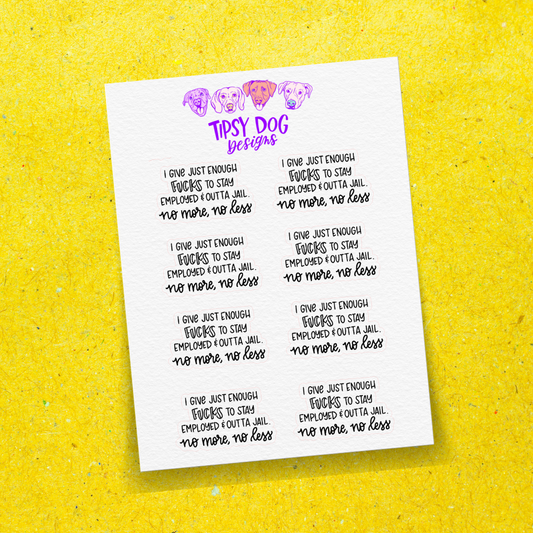 TIPSY DOG
Designs
I GIVE JUST ENOUGH
FUCKS TO STAY
EMPLOYED & OUTTA JAIL.
no more, no less
I GIVE JUST ENOUGH
FUCKS TO STAY
EMPLOYED & OUTTA JAIL.
no more, no less
I GIVE JUST ENOUGH
FUCKS TO STAY
EMPLOYED & OUTTA JAIL.
no more, no less
I GIVE JUST ENOUGH
FUCKS TO STAY
EMPLOYED & OUTTA JAIL.
no more, no less
I GIVE JUST ENOUGH
FUCKS TO STAY
EMPLOYED & OUTTA JAIL.
no more, no less
I GIVE JUST ENOUGH
FUCKS TO STAY
EMPLOYED & OUTTA JAIL.
no more, no less
I GIVE JUST ENOUGH
FUCKS TO STAY
EMPLOYED & OUTTA JAIL.
no more, no less
I GIVE JUST ENOUGH
FUCKS TO STAY
EMPLOYED & OUTTA JAIL.
no more, no less